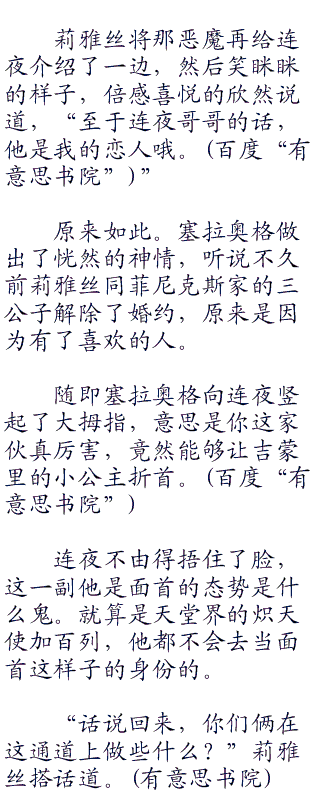 莉雅丝将那恶魔再给连
夜介绍了一边，然后笑眯眯
的样子，倍感喜悦的欣然说
道，“至于连夜哥哥的话，
他是我的恋人哦。(百度“有
意思书院”)”
原来如此。塞拉奥格做
出了恍然的神情，听说不久
前莉雅丝同菲尼克斯家的三
公子解除了婚约，原来是因
为有了喜欢的人。
随即塞拉奥格向连夜竖
起了大拇指，意思是你这家
伙真厉害，竟然能够让吉蒙
里的小公主折首。(百度“有
意思书院”)
连夜不由得捂住了脸，
这一副他是面首的态势是什
么鬼。就算是天堂界的炽天
使加百列，他都不会去当面
首这样子的身份的。
“话说回来，你们俩在
这通道上做些什么？”莉雅
丝搭话道。(有意思书院)